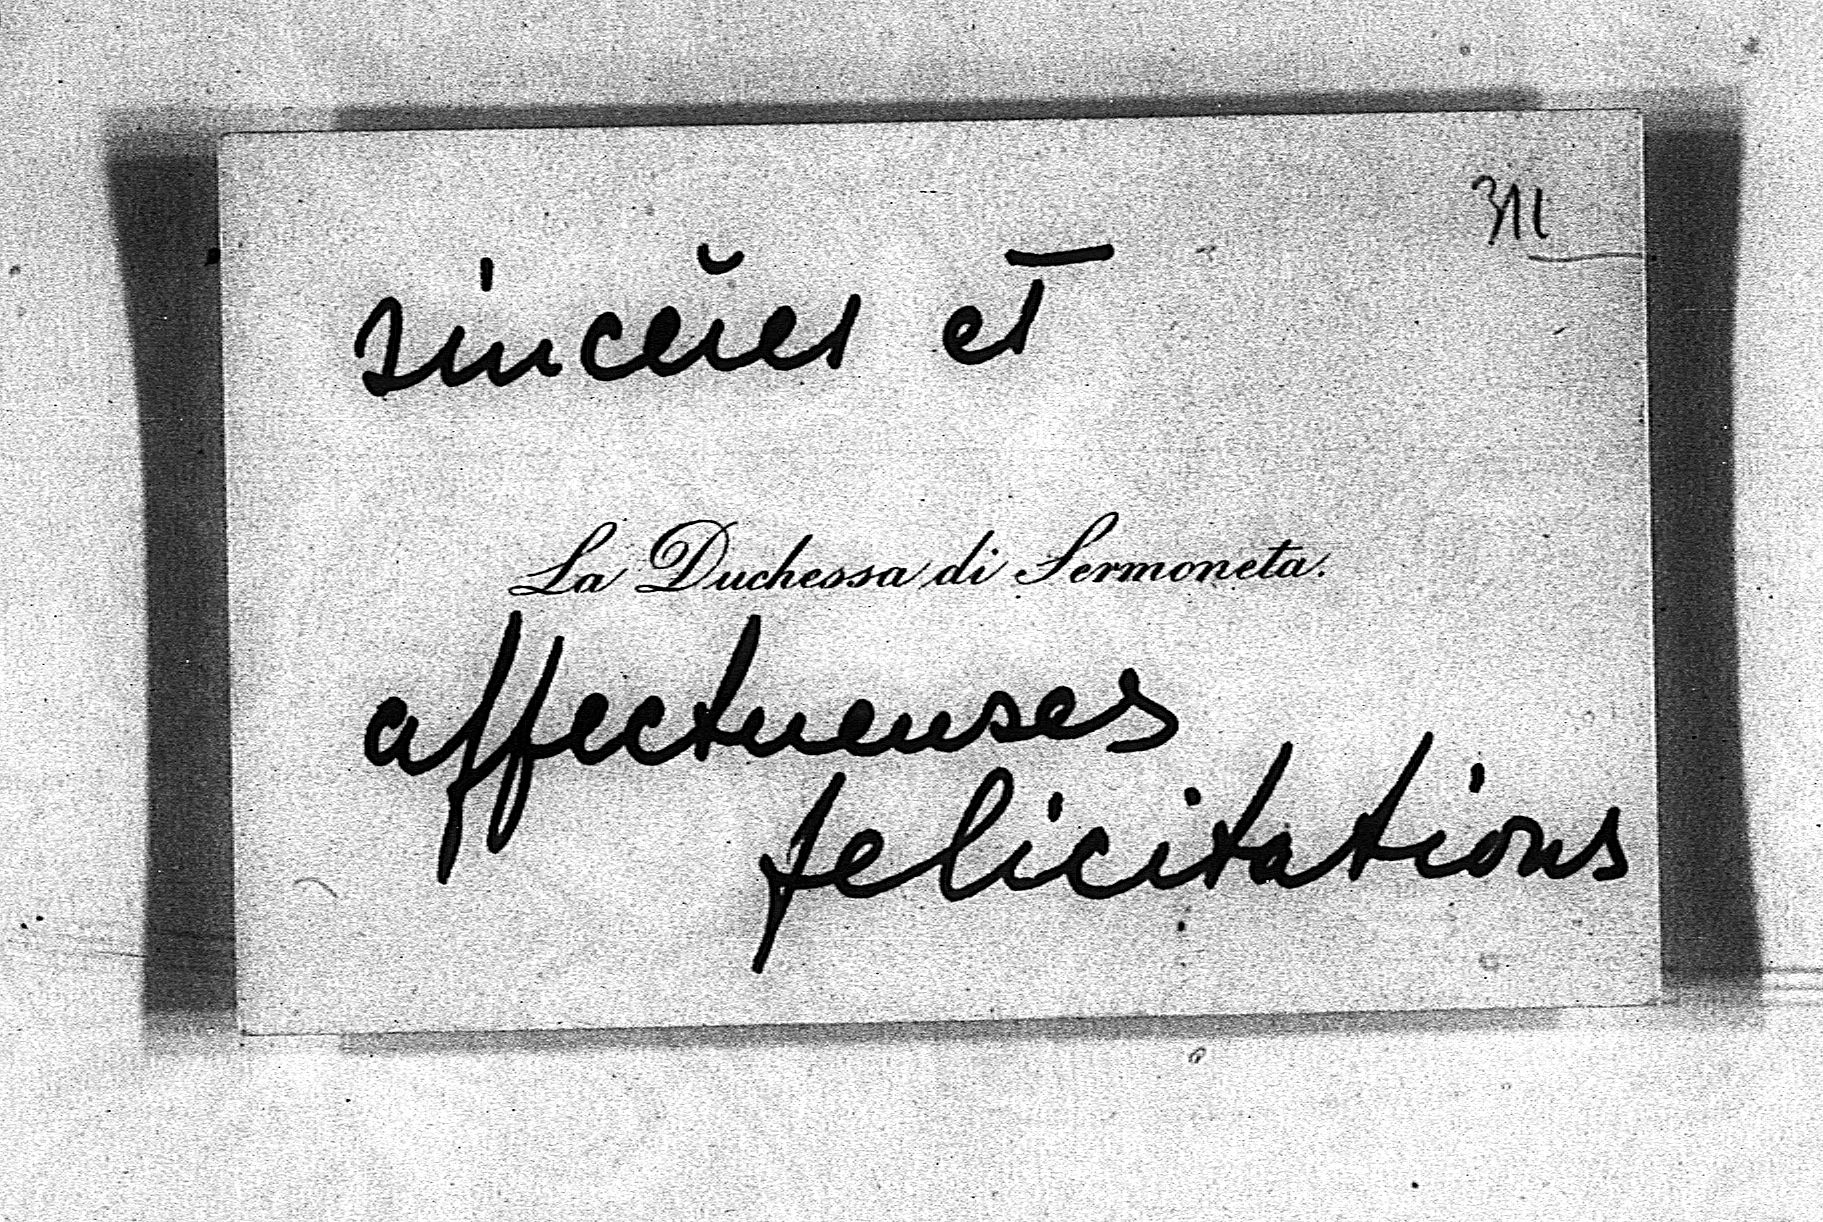 311
sincères et
La Duchessa di Sermoneta.
affectueuses
felicitations